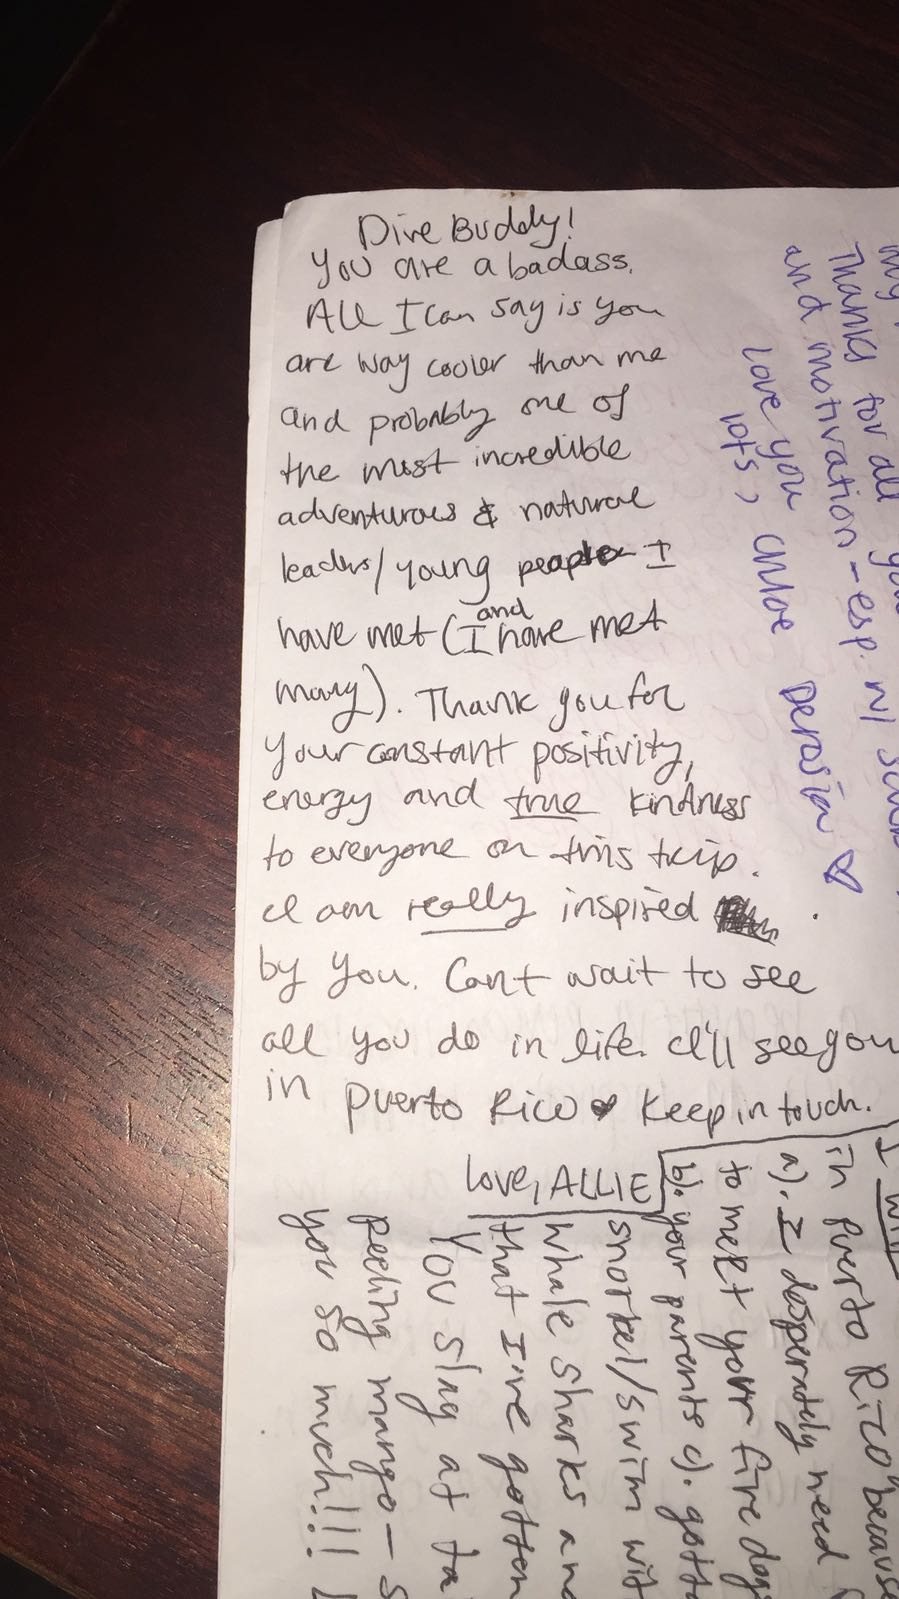 Dive Buddy!
You are a badass.
All I can say is you
are way cooler than me
and probably one of
the most incredible
adventurous & natural
leaders/young people I
have met (and I have met
many). Thank you for
your constant positivity,
energy and true kindness
to everyone on this trip.
I am really inspired
by you. Cant wait to see
all you do in life. I'll see you
in Puerto Rico ♥ Keep in touch.
Love, ALLIE
my
Thanks for all your
and motivation - esp. w/
love you chloe Derosia ♡
lots,
I will
in Puerto Rico because
a). I desperately need
to meet your five dogs
b). your parents c). gotta
snorkel/swim with
whale sharks and
that I've gotten
You slay at
peeling mango -
you so much!!!